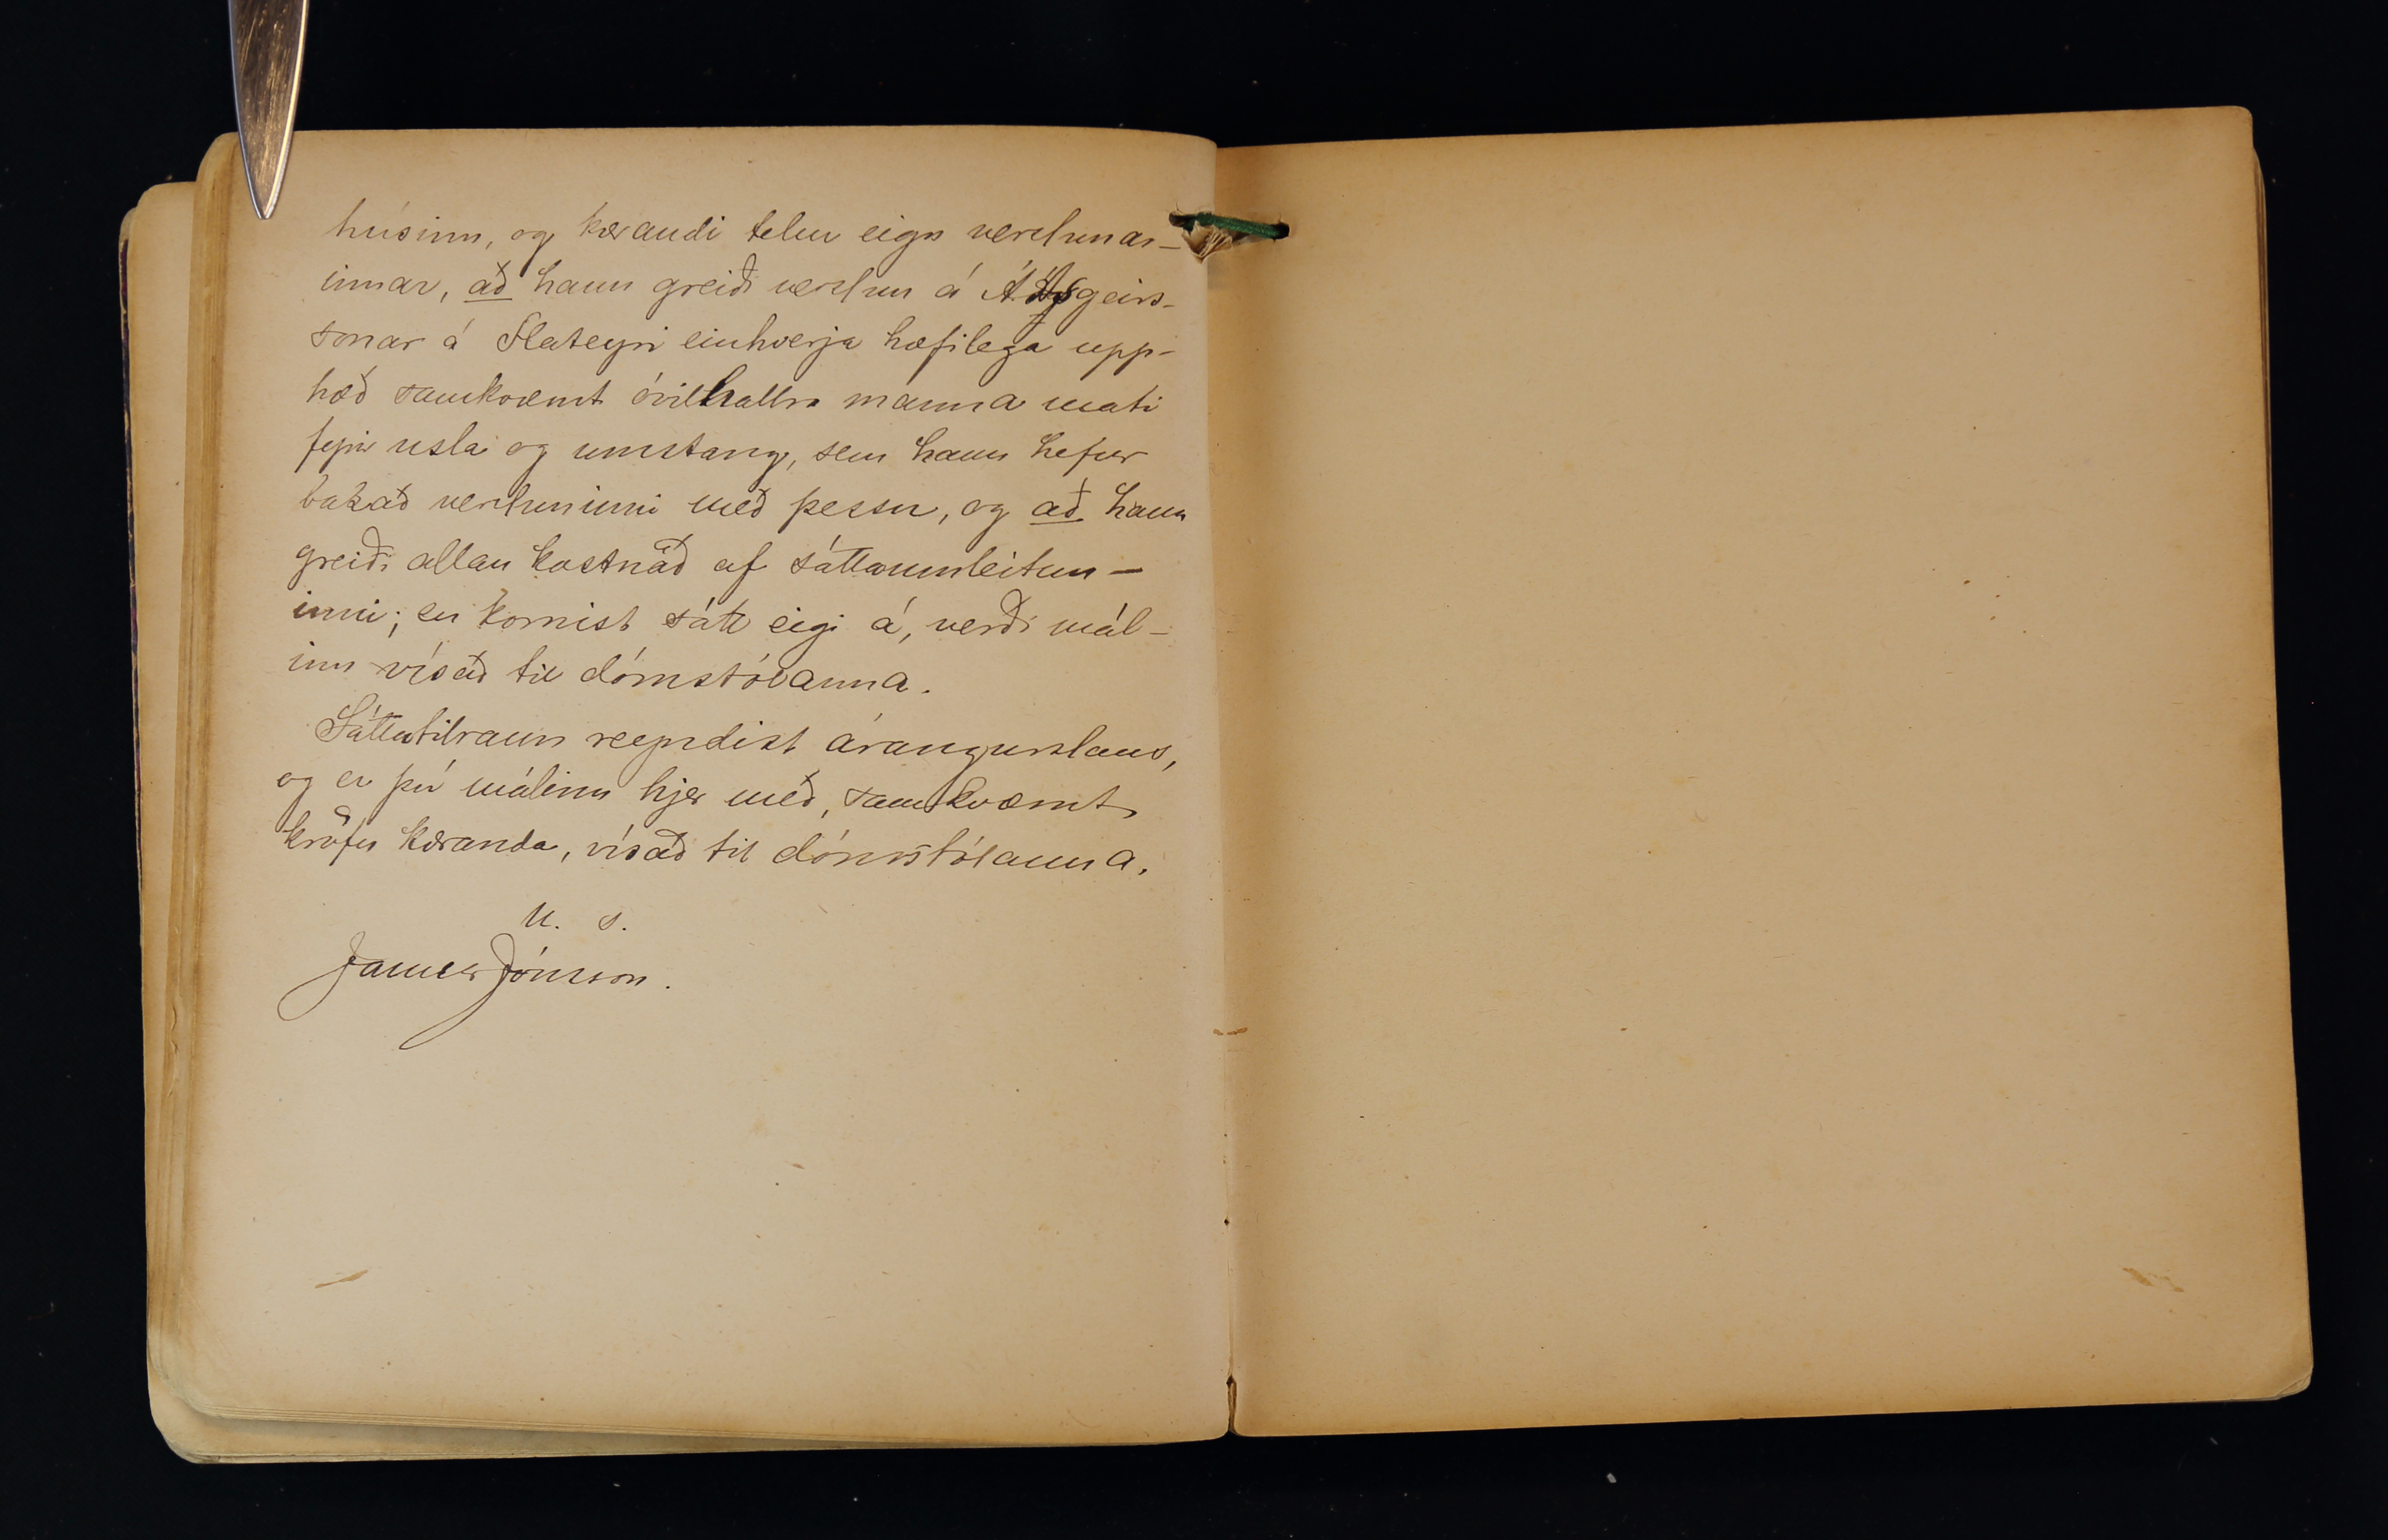 húsinn, og kærandi telur eign verslunar-
innar, að hann greiði verslun á Á. Ásgeirs-
sonar á Flateyri einhverja hæfilega upp-
hæð samkvæmt óvilhallra manna mati
fyrir usla og umstang, sem hann hefur
bakað versluninni með þessu, og að hann
greiði allan kostnað af sáttaumleitun-
inni; en komist sátt eigi á, verði mál-
inu vísað til dómstólanna.
Sáttatilraun reyndist árangurslaus,
og er því málinu hjer með, samkvæmt
kröfu kæranda, vísað til dómstólanna.
u. s.
James Jónsson.